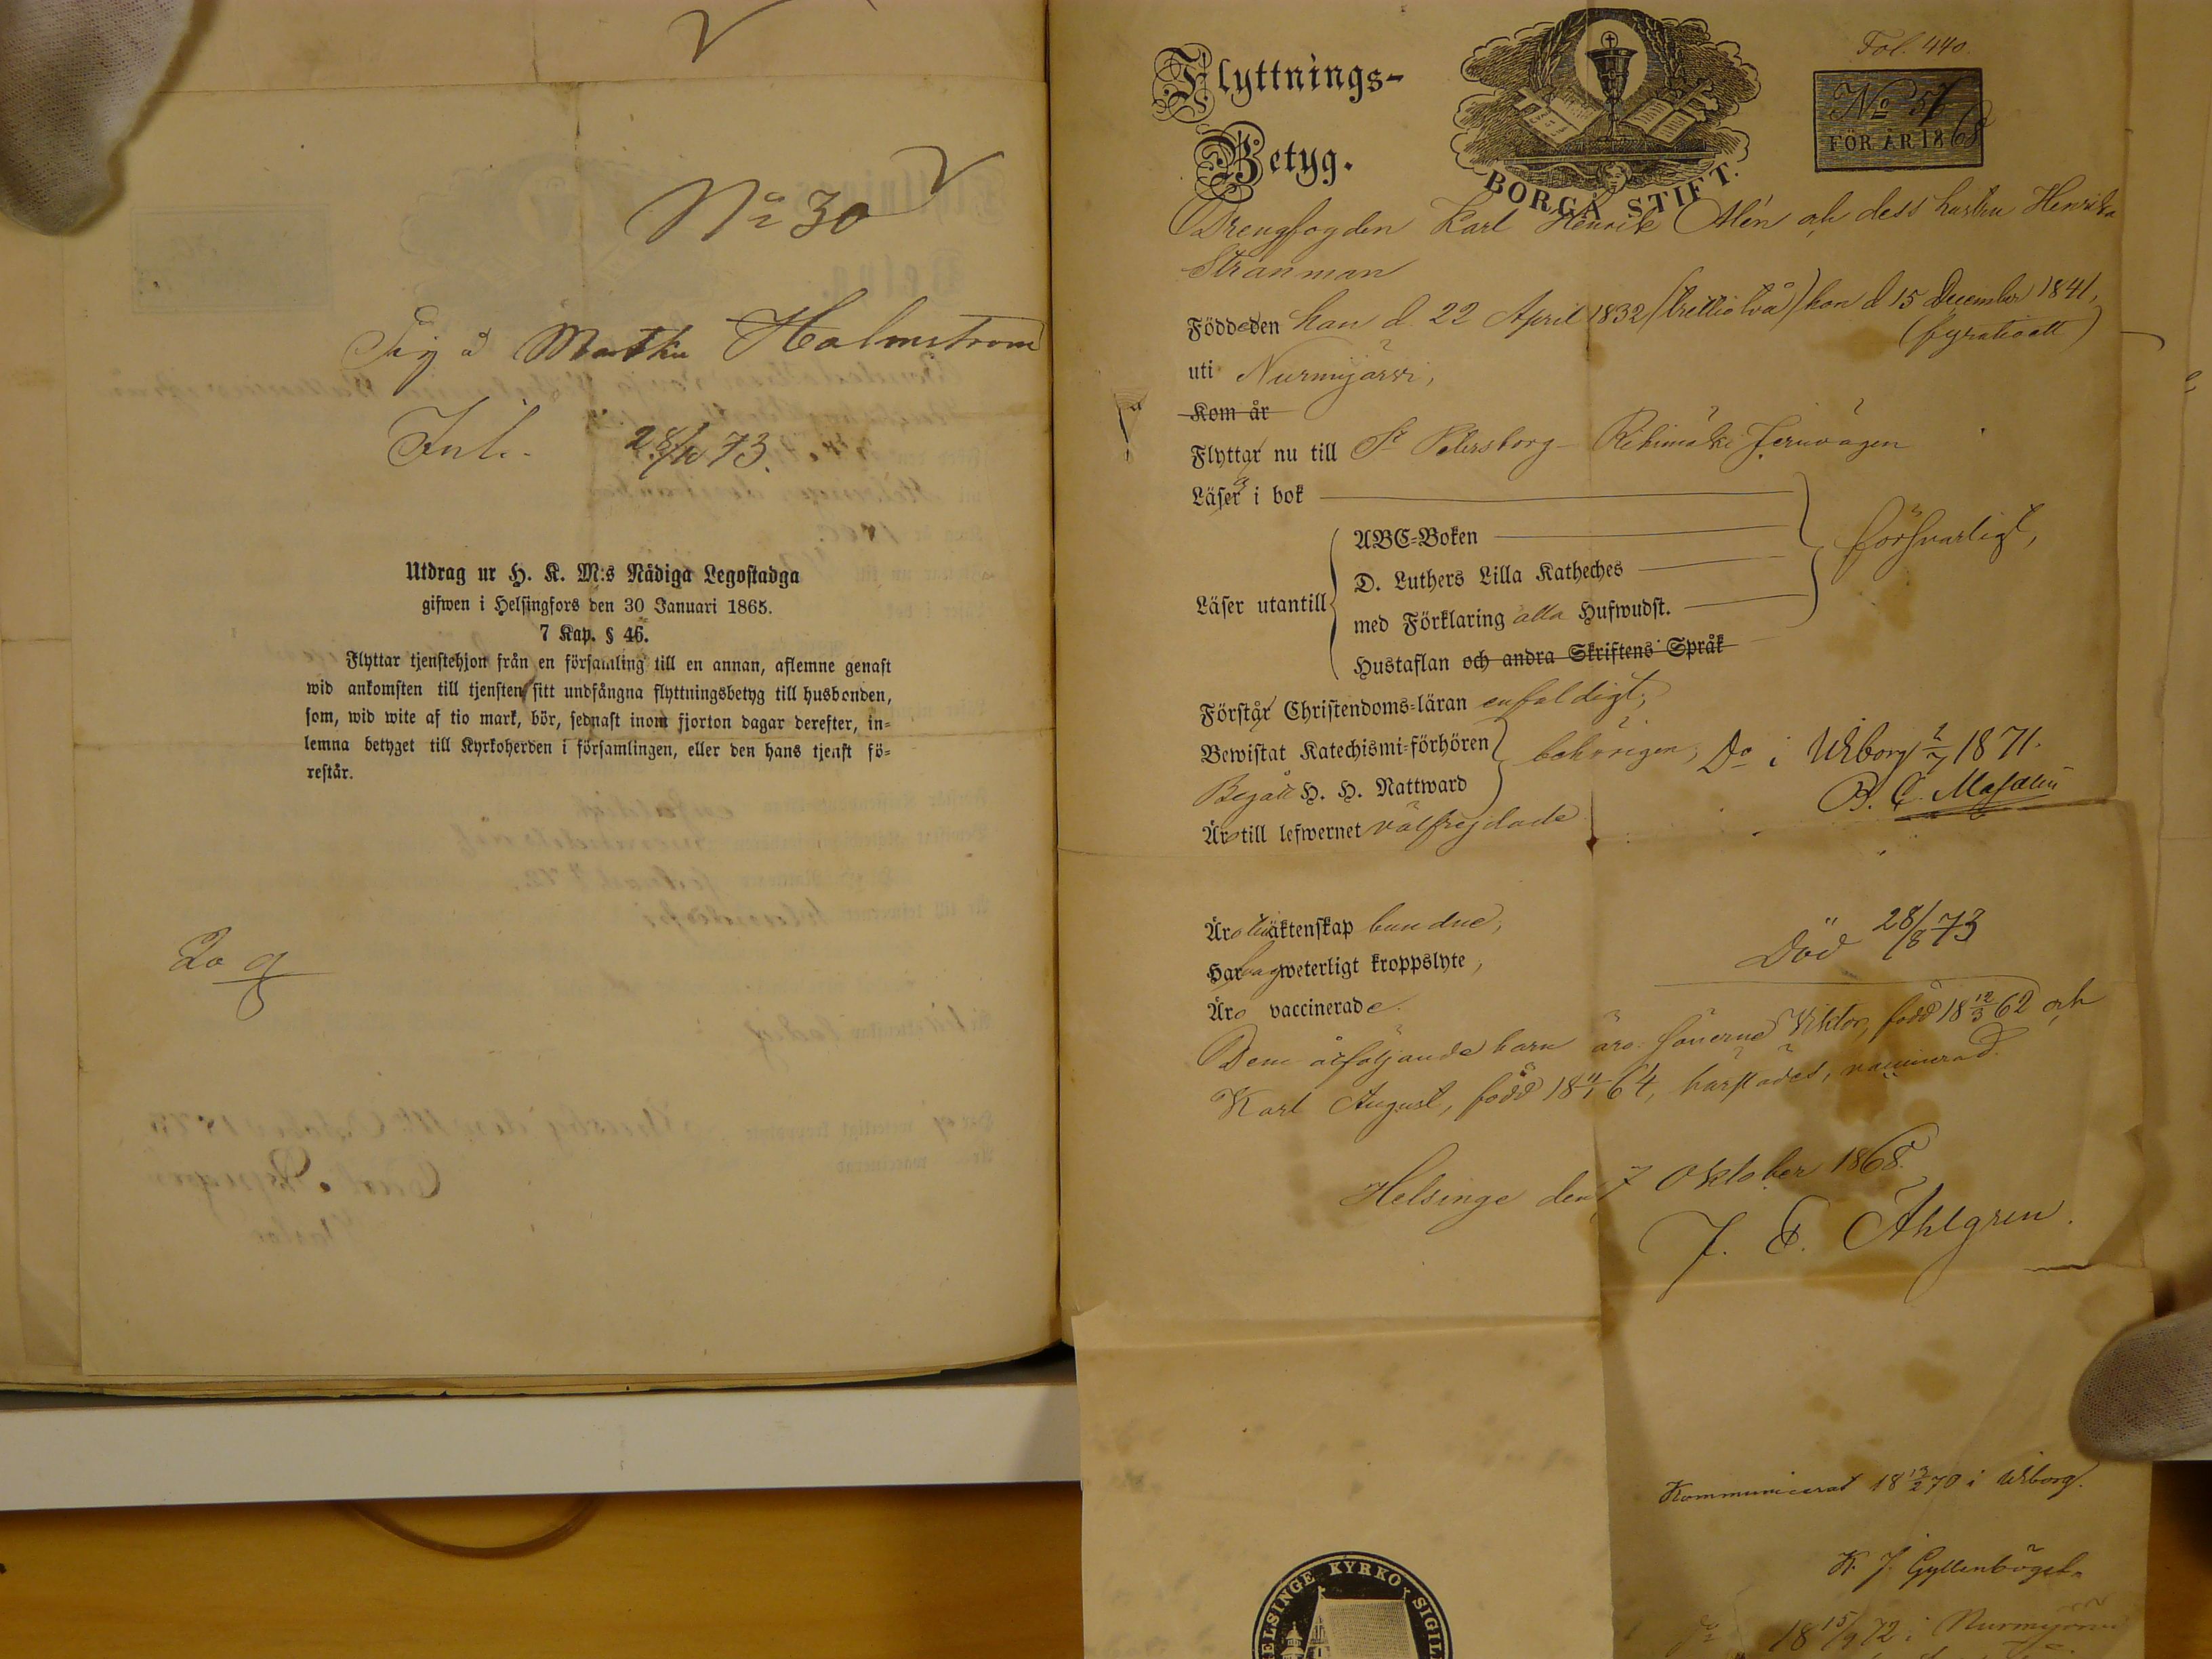 No 30
Martha Holmström
Inl. 28/10 73.
Utdrag ur H. K. M:s Nådiga Legostadga
gifwen i Helsingfors den 30 Januari 1865.
7 Kap. § 46.
Flyttar tjenstehjon från en församling till en annan, aflemne genast
wid ankomsten till tjensten sitt undfångna flyttningsbetyg till husbonden,
som, wid wite af tio mark, bör, sednast inom fjorton dagar derefter, in-
lemna betyget till Kyrkoherden i församlingen, eller den hans tjenst fö-
restår.
Flyttnings-
Betyg.
BORGÅ STIFT.
Fol. 440
No 51
FÖR ÅR 1868
Drengfogden Karl Henrik Alén och dess hustru Henrika
Stranman
Födde den han d. 22 April 1832 (trettiotvå) hon d 15 December 1841,
(fyratioett)
uti Nurmijärvi,
Kom år
Flyttar nu till St Petersborg - Rihimäki Jernvägen
Läser i bok
Läser utantill
ABC-Boken
D. Luthers Lilla Katheches
med Förklaring alla Hufwudst.
Hustaflan och andra Skriftens Språk
försvarligt,
Förstår Christendoms-läran enfaldigt,
Bewistat Katechismi-förhören
Begått H. H. Nattward
behörigen, Do i Wiborg 2/7 1871.
Är till lefwernet välfrejdade
Äro till äktenskap bundne,
Har weterligt kroppslyte,
Äro vaccinerade.
Död 28/8 73
Dem åtföljande barn äro sönerne Viktor, född 18 12/3 62 och
Karl August, född 18 11/1 64, härstädes, vaccinerad.
Helsinge den 7 Oktober 1868.
J. E. Åhlgren.
Kommunicerat 18 13/2 70 i Wiborg.
K. J. Gyllenbögel.
18 15/9 72 i Nurmijärvi
HELSINGE KYRKO SIGIL